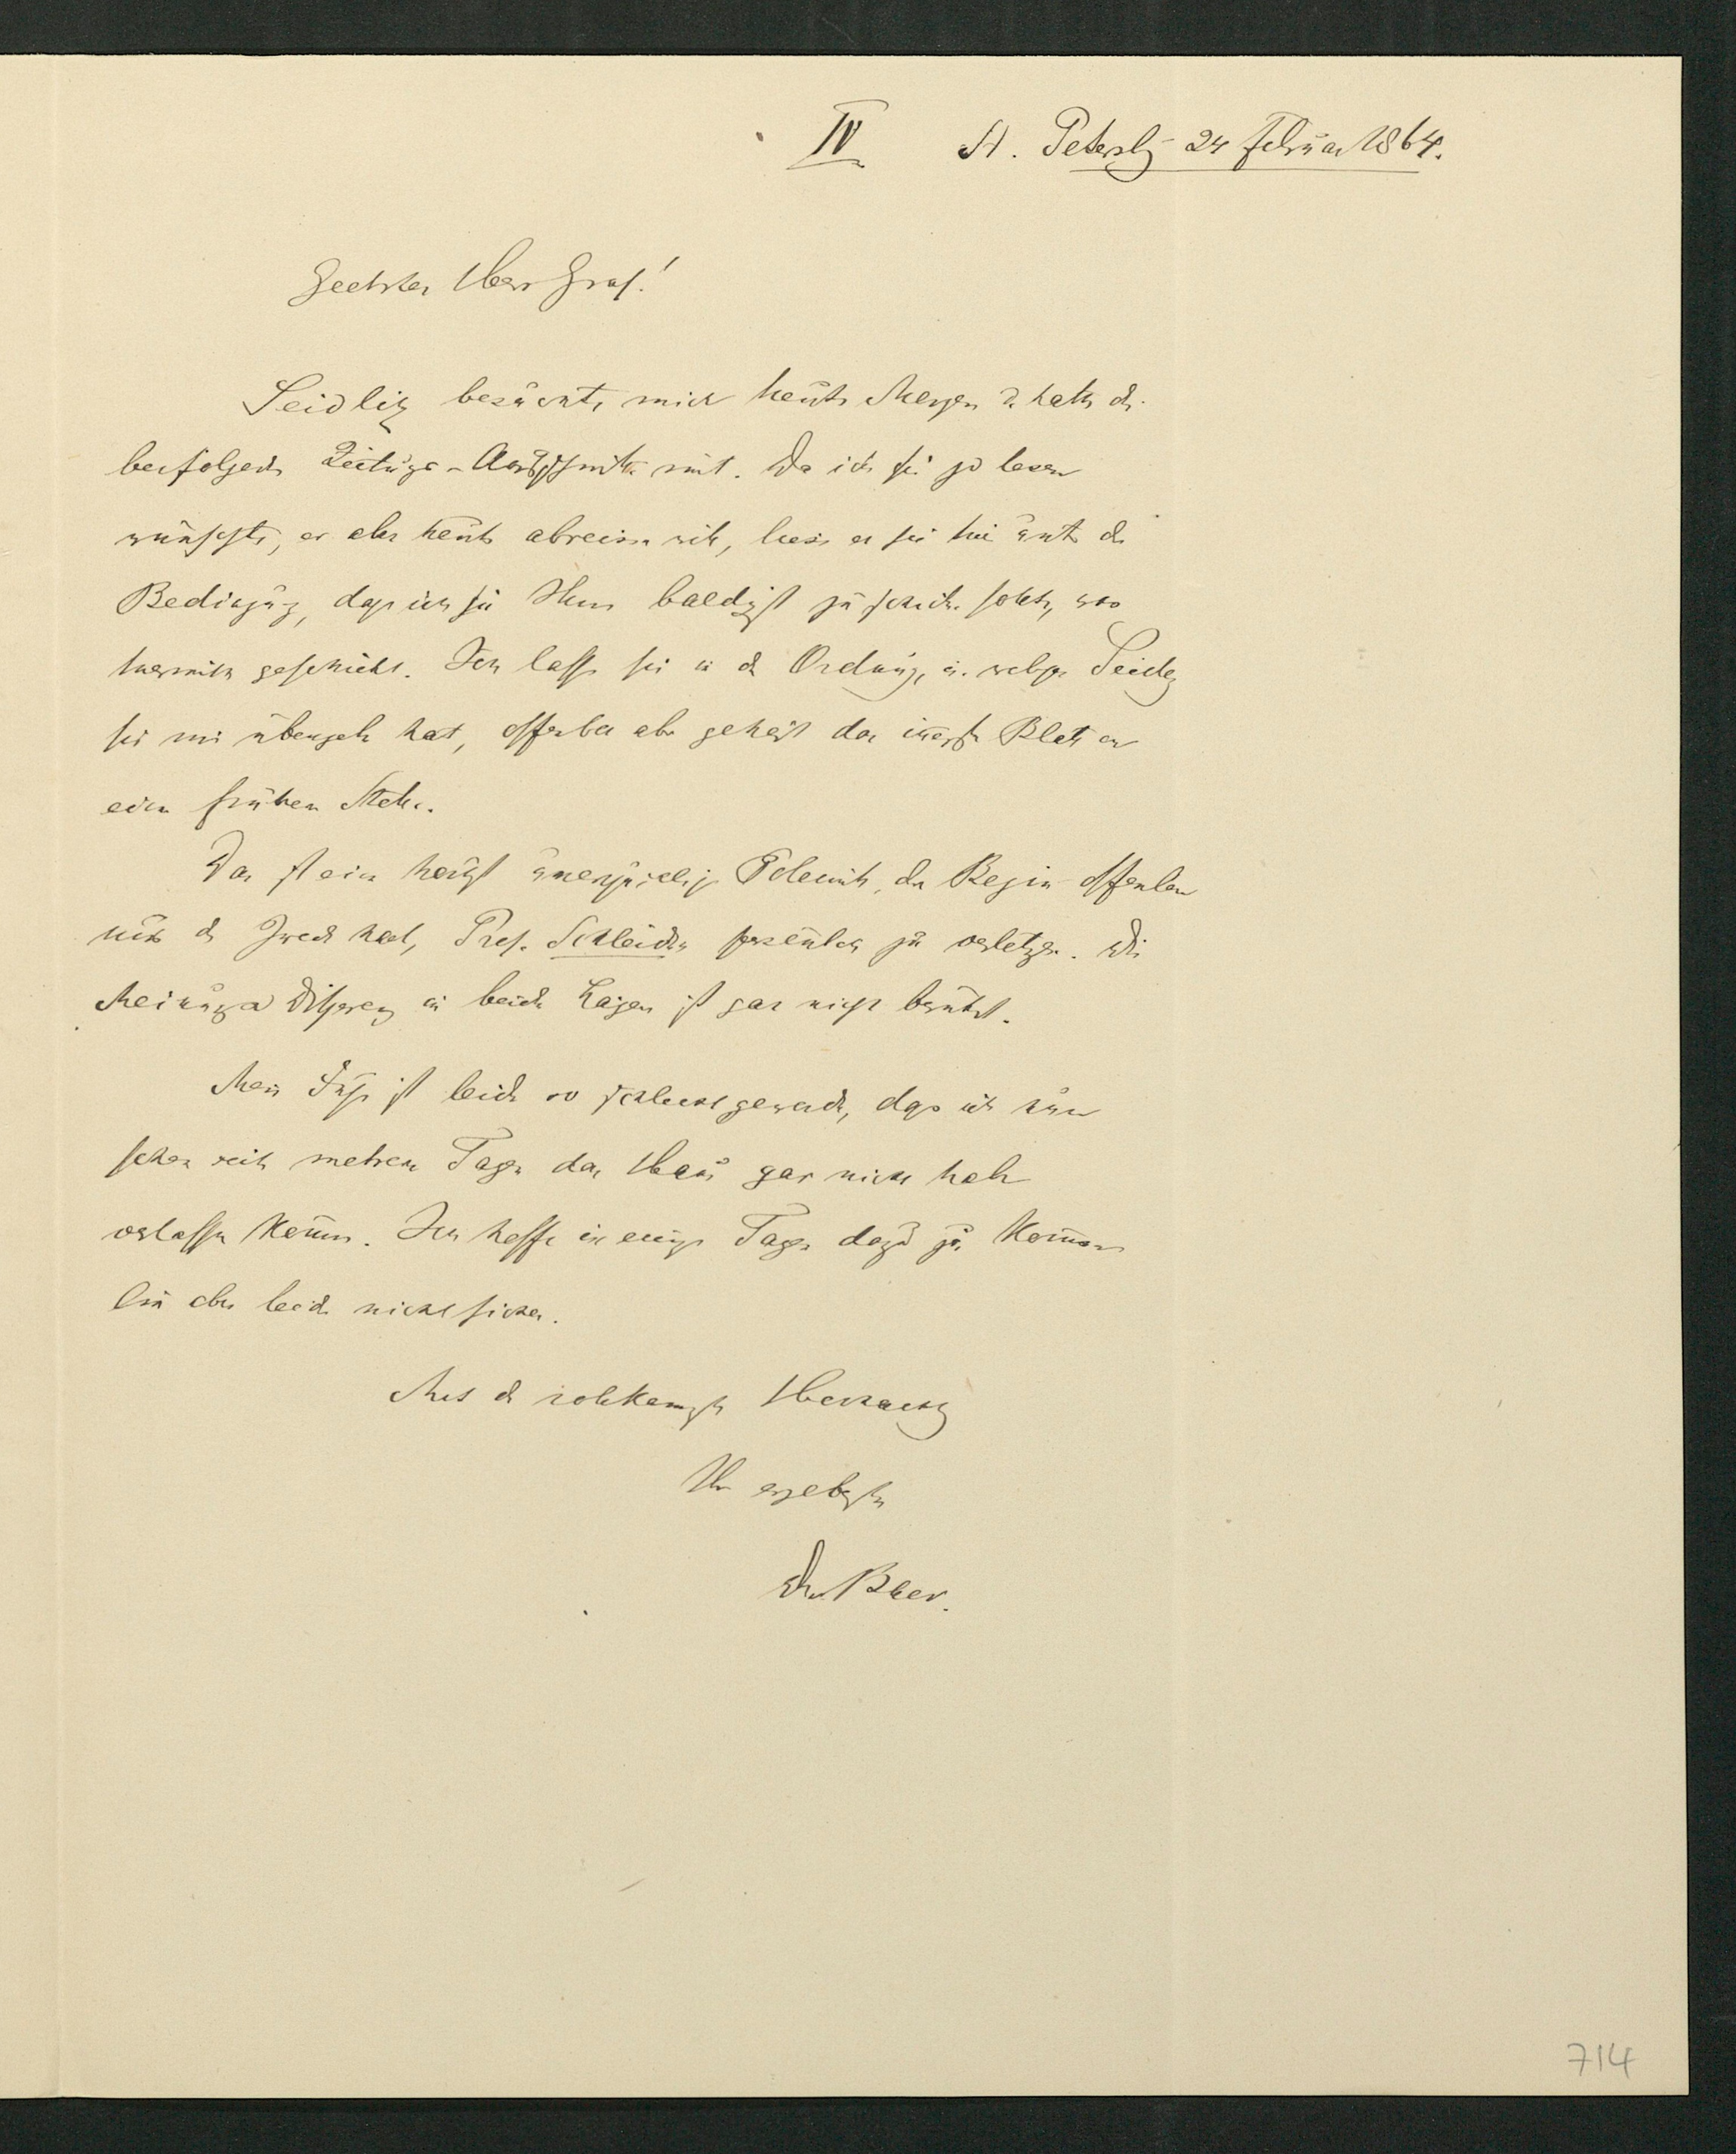 IV St. Petersbg 24 Februar 1864.
Geehrter Herr Graf!
Seidlitz besuchte mich heute Morgen u. hatte die
beifolgenden Zeitungs-Ausschnitte mit. Da ich sie zu lesen
wünschte, er aber heute abreisen will, liess er sie hier unter der
Bedingung, dass ich sie Ihnen baldigst zuschicken sollte, was
hiermit geschieht. Ich lasse sie in der Ordnung, in welcher Seidlitz
sie mir übergeben hat, offenbar aber gehört das innerste Blatt an
eine frühere Stelle.
Das ist eine höchst unerquickliche Polemik, deren Beginn offenbar
nur den Zweck hat, Prof. Schleiden persönlich zu verletzen. Die
Meinungs Differenz in beiden Lagern ist gar nicht berührt.
Mein Fuss ist leider so schlecht geworden, dass ich nun
schon seit mehren Tagen das Haus gar nicht habe
verlassen können. Ich hoffe in einigen Tagen dazu zu kommen
bin aber leider nicht sicher.
Mit der vollkommensten Hochachtung
Ihr ergebenster
Dr. Baer.
714